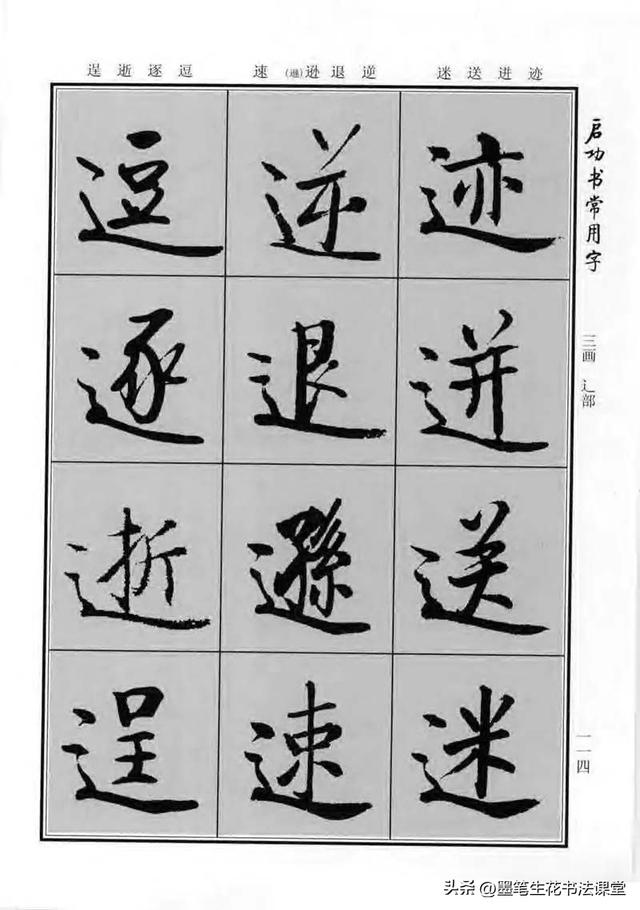 逞逝逐逗 速(遜)逊退逆 迷送迸迹
启功书常用字
三画 辶部
一一四
迹迸送迷
逆退遜速
逗逐逝逞
头条 @墨笔生花书法课堂